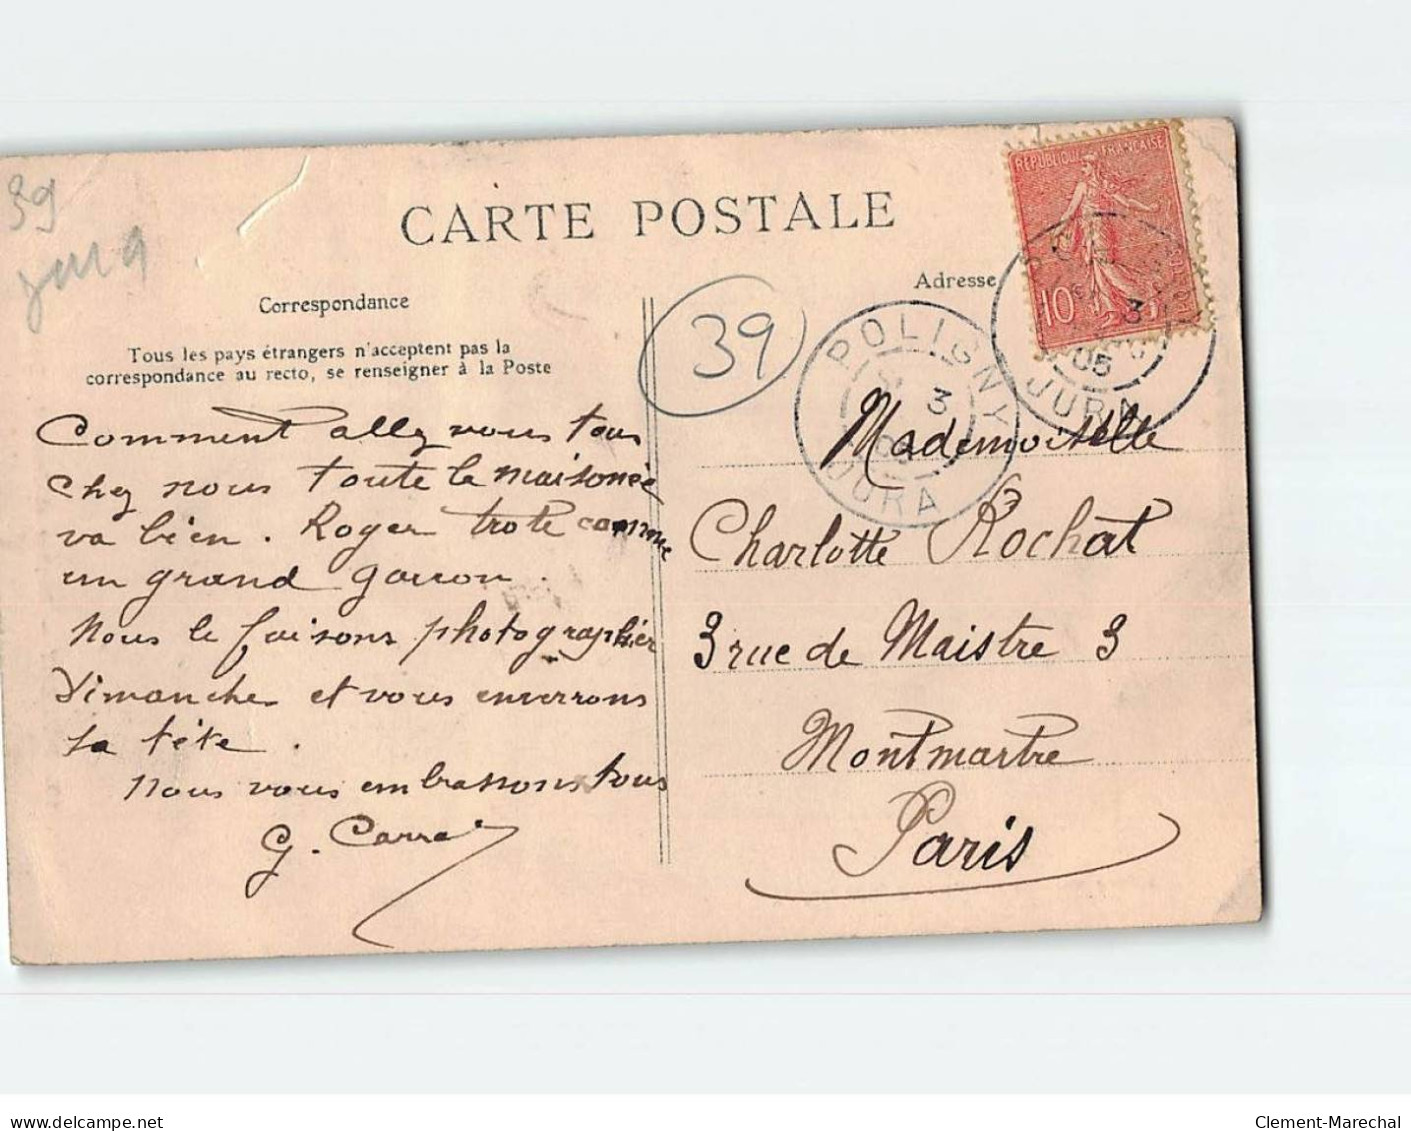 39
CARTE POSTALE
RÉPUBLIQUE FRANÇAISE
10
Correspondance
Adresse
39
Tous les pays étrangers n'acceptent pas la
correspondance au recto, se renseigner à la Poste
POLIGNY
3
05
JURA
3
05
JURA
Comment allez vous tous
chez nous toute la maisonée
va bien. Roger trote comme
un grand garcon.
Nous le faisons photographier
Dimanche et vous enverrons
sa tête.
Nous vous embrassons tous
G. Carre
Mademoiselle
Charlotte Rochat
3 rue de Maistre 3
Montmartre
Paris
delcampe.net
Clement-Marechal